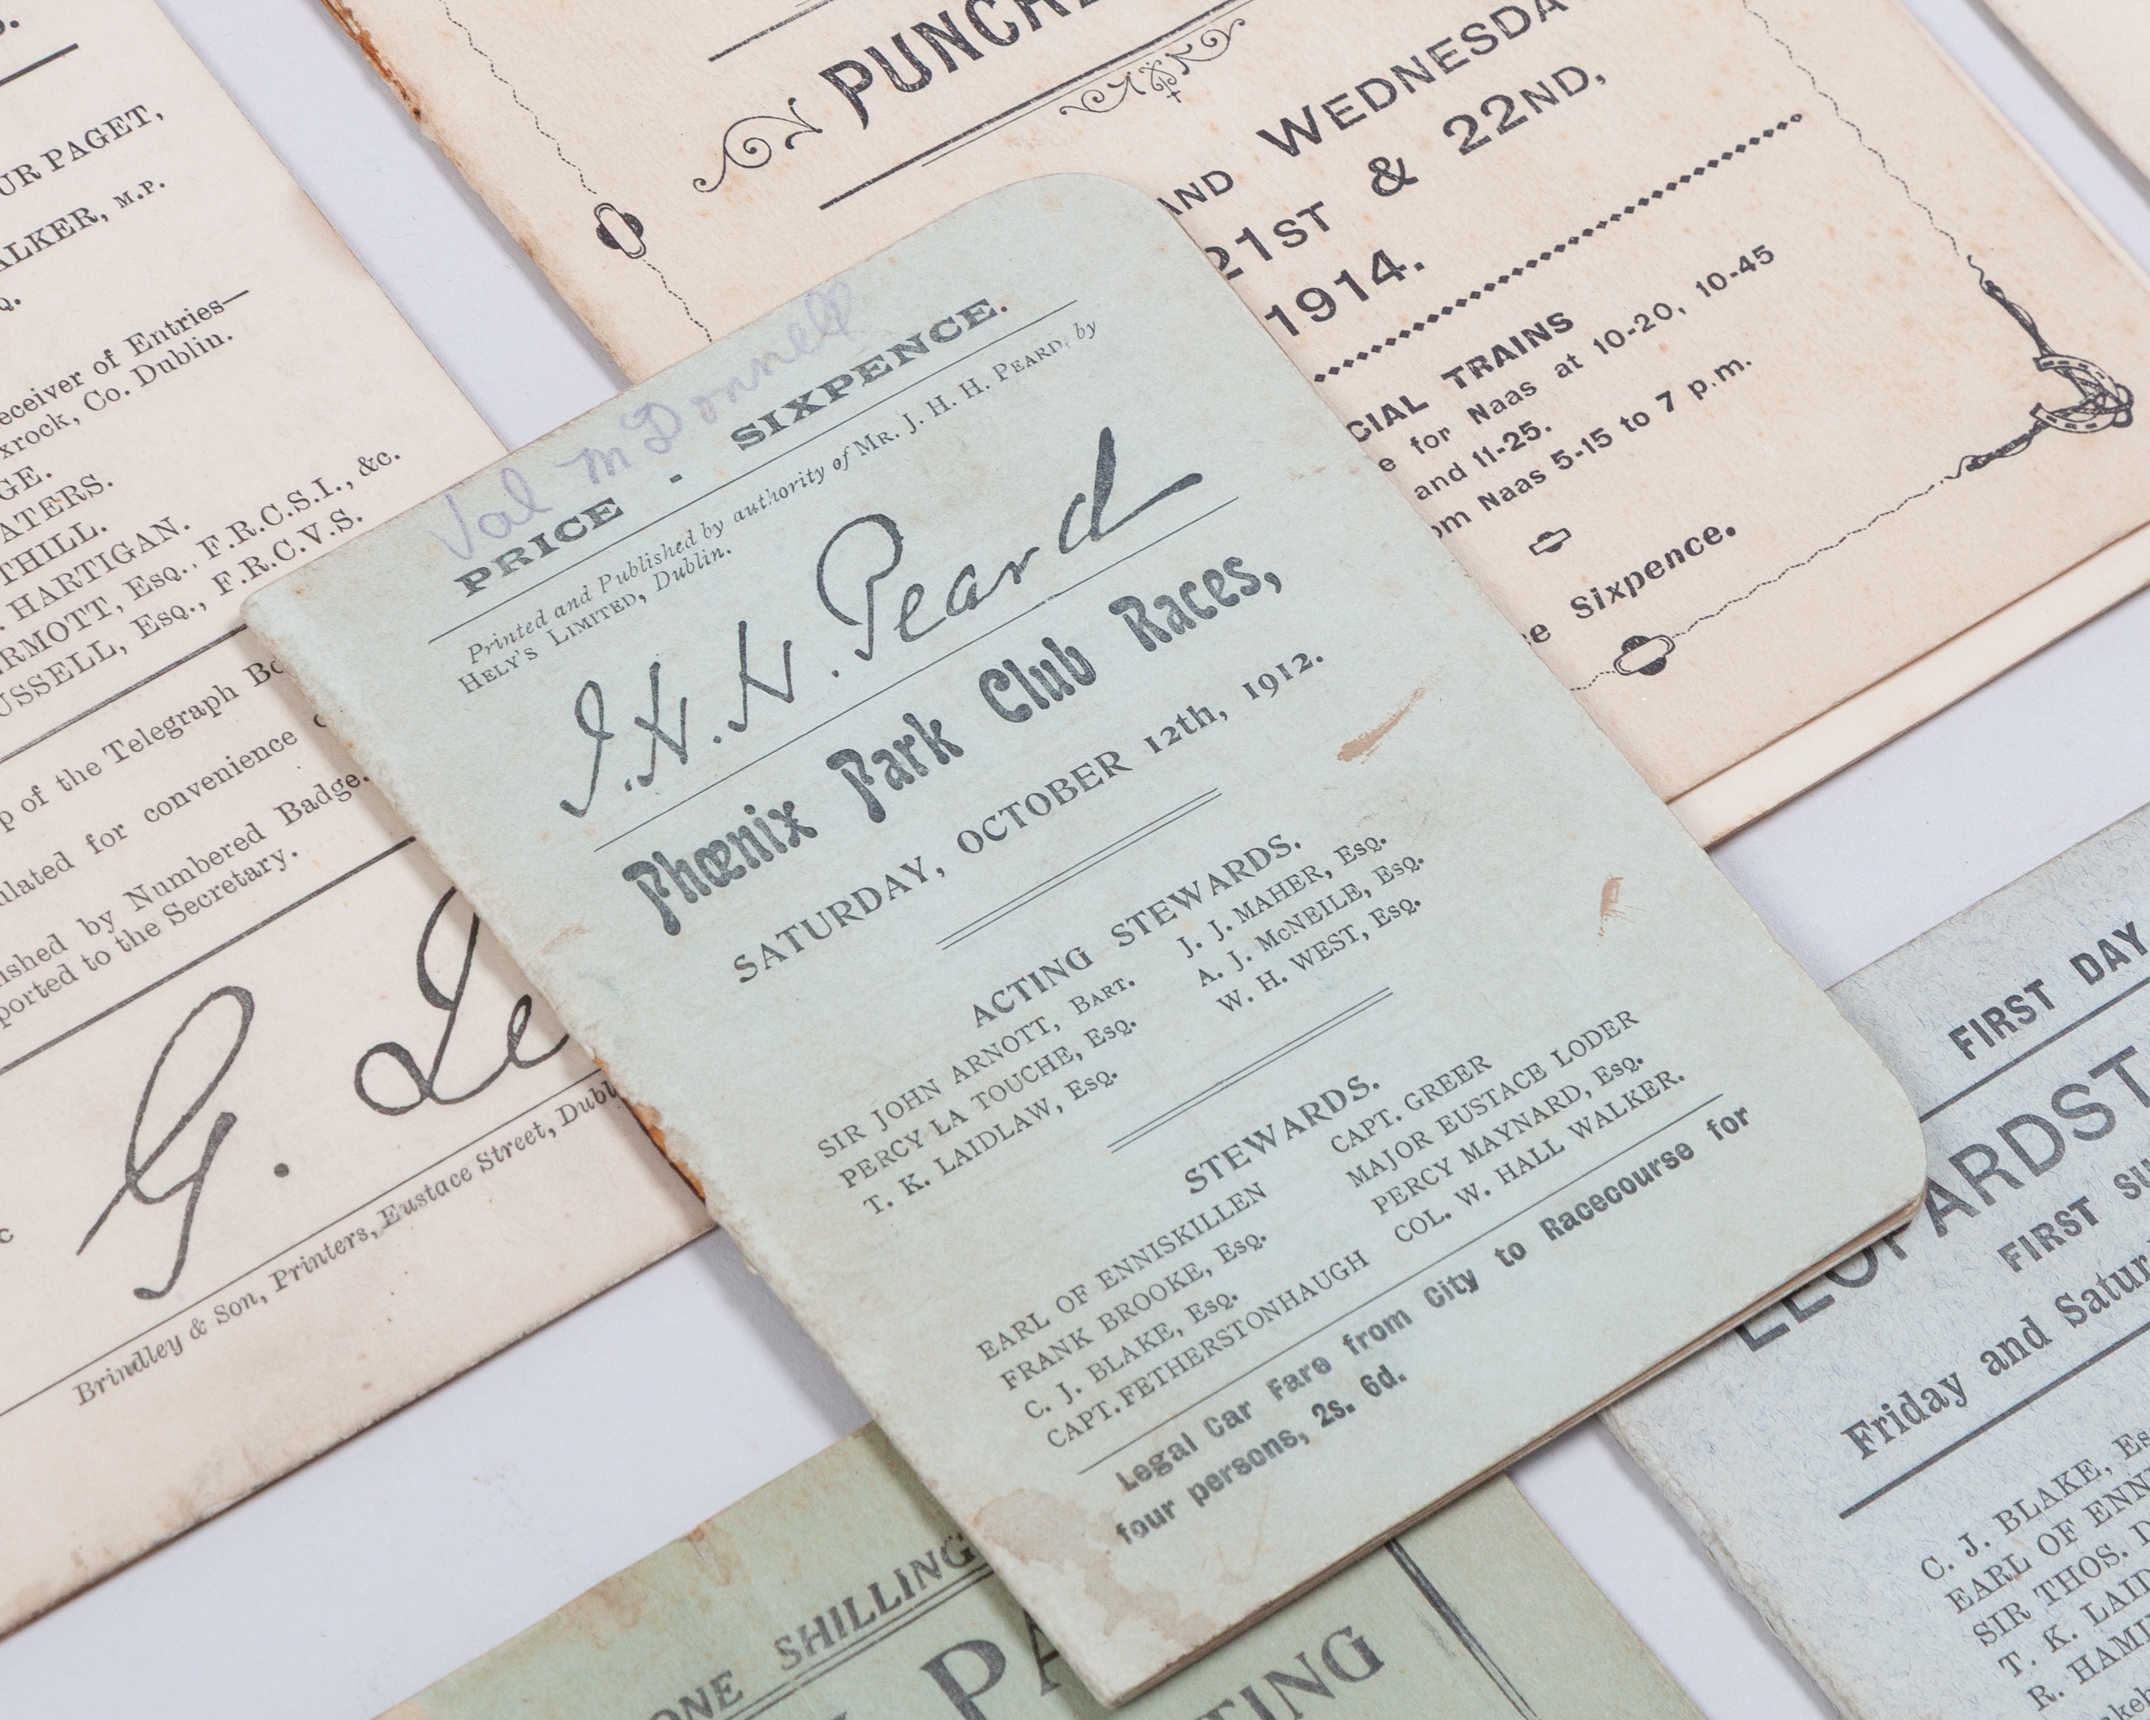 UR PAGET,
ALKER, M.P.
eceiver of Entries—
xrock, Co. Dublin.
GE.
ATERS.
THILL.
. HARTIGAN.
ERMOTT, Esq., F.R.C.S.I., &c.
USSELL, Esq., F.R.C.V.S.
p of the Telegraph Bo
ulated for convenience
ished by Numbered Badge.
ported to the Secretary.
G. Le
Brindley & Son, Printers, Eustace Street, Dubl
PUNCHE
AND WEDNESDA
21ST & 22ND,
1914.
CIAL TRAINS
e for Naas at 10-20, 10-45
and 11-25.
om Naas 5-15 to 7 p.m.
ce Sixpence.
Val McDonnell
PRICE - SIXPENCE.
Printed and Published by authority of MR. J. H. H. PEARD, by
HELY'S LIMITED, Dublin.
J. H. H. Peard
Phœnix Park Club Races,
SATURDAY, OCTOBER 12th, 1912.
ACTING STEWARDS.
SIR JOHN ARNOTT, BART. J. J. MAHER, ESQ.
PERCY LA TOUCHE, ESQ. A. J. McNEILE, ESQ.
T. K. LAIDLAW, ESQ. W. H. WEST, ESQ.
STEWARDS.
EARL OF ENNISKILLEN CAPT. GREER
FRANK BROOKE, ESQ. MAJOR EUSTACE LODER
C. J. BLAKE, ESQ. PERCY MAYNARD, ESQ.
CAPT. FETHERSTONHAUGH COL. W. HALL WALKER.
Legal Car Fare from City to Racecourse for
four persons, 2s. 6d.
FIRST DAY
LEOPARDST
FIRST SU
Friday and Satur
C. J. BLAKE, Es
EARL OF ENN
SIR THOS. D
T. K. LAID
R. HAM
ONE SHILLING
PA
TING